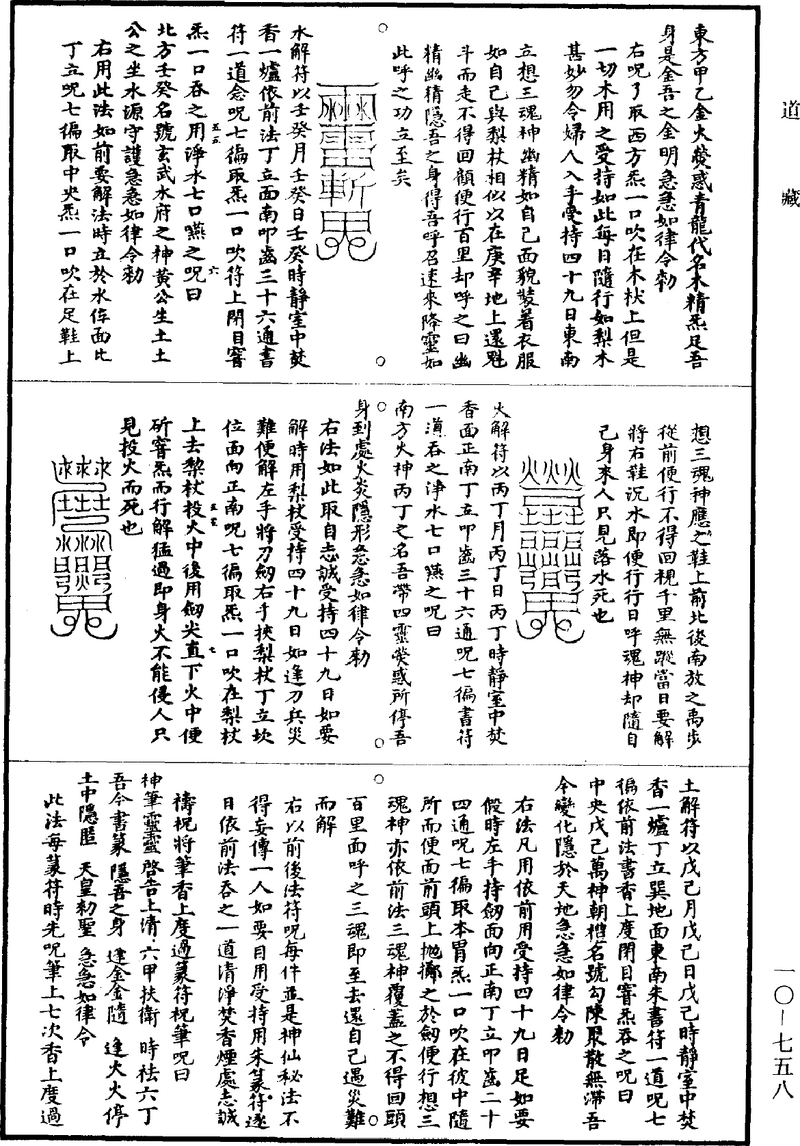 道藏
東方甲乙金火熒惑青龍代名木精炁足吾
身是金吾之金明急急如律令勑
右呪了取西方炁一口吹在木杖上但是
一切木用之受持如此每日隨行如梨木
甚妙勿令婦人入手受持四十九日東南
立想三魂神幽精如自己面貌裝着衣服
如自己與梨杖相似以在庚辛地上還魁
斗而走不得回顧便行百里却呼之曰幽
精幽精隱吾之身得吾呼召速來降靈如
此呼之功立至矣
水解符以壬癸月壬癸日壬癸時靜室中焚
香一爐依前法丁立面南叩齒三十六通書
符一道念呪七徧取炁一口吹符上閉目窨
炁一口吞之用淨水七口噀之呪曰
北方壬癸名號玄武水府之神黃公生土土
公之坐水源守護急急如律令勑
右用此法如前要解法時立於水岸面北
丁立呪七徧取中央炁一口吹在足鞋上
想三魂神應之鞋上前北後南放之禹步
從前便行不得回視千里無蹤當日要解
將右鞋沉水即便行行日呼魂神却隨自
己身來人只見落水死也
火解符以丙丁月丙丁日丙丁時靜室中焚
香面正南丁立叩齒三十六通呪七徧書符
一道吞之淨水七口噀之呪曰
南方火神丙丁之名吾帶四靈熒惑所停吾
身到處火炎隱形急急如律令勑
右法如此取自志誠受持四十九日如要
解時用梨杖受持四十九日如逢刀兵災
難便解左手將刀劒右手挾梨杖丁立坎
位面向正南呪七徧取炁一口吹在梨杖
上去梨杖投火中後用劒尖直下火中便
斫窨炁而行解猛過即身火不能侵人只
見投火而死也
土解符以戊己月戊己日戊己時靜室中焚
香一爐丁立巽地面東南朱書符一道呪七
徧依前法書香上度閉目窨炁吞之呪曰
中央戊己萬神朝禮名號勾陳聚散無滯吾
今變化隱於天地急急如律令勑
右法凡用依前用受持四十九日足如要
假時左手持劒面向正南丁立叩齒二十
四通呪七徧取本胃炁一口吹在彼中隨
所而便面前頭上拋擲之於劒便行想三
魂神亦依前法三魂神覆蓋之不得回頭
百里面呼之三魂即至去還自己遇災難
而解
右以前後法符呪每件並是神仙秘法不
得妄傳一人如要目用受持用朱篆符逐
日依前法吞之一道清淨焚香煙處志誠
禱祝將筆香上度過篆符祝筆呪曰
神筆靈靈 啓告上清 六甲扶衛 時祛六丁
吾今書篆 隱吾之身 逢金金隨 逢火火停
土中隱匿 天皇勑聖 急急如律令
此法每篆符時先呪筆上七次香上度過
一〇—七五八